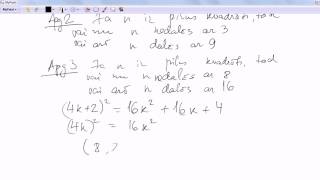 Apg 2 Ja n ir pilns kvadrāts, tad
vai nu n nedalās ar 3
vai arī n dalās ar 9
Apg 3 Ja n ir pilns kvadrāts, tad
vai nu n nedalās ar 8
vai arī n dalās ar 16
(4k+2)² = 16k² + 16k + 4
(4k)² = 16k²
(8,